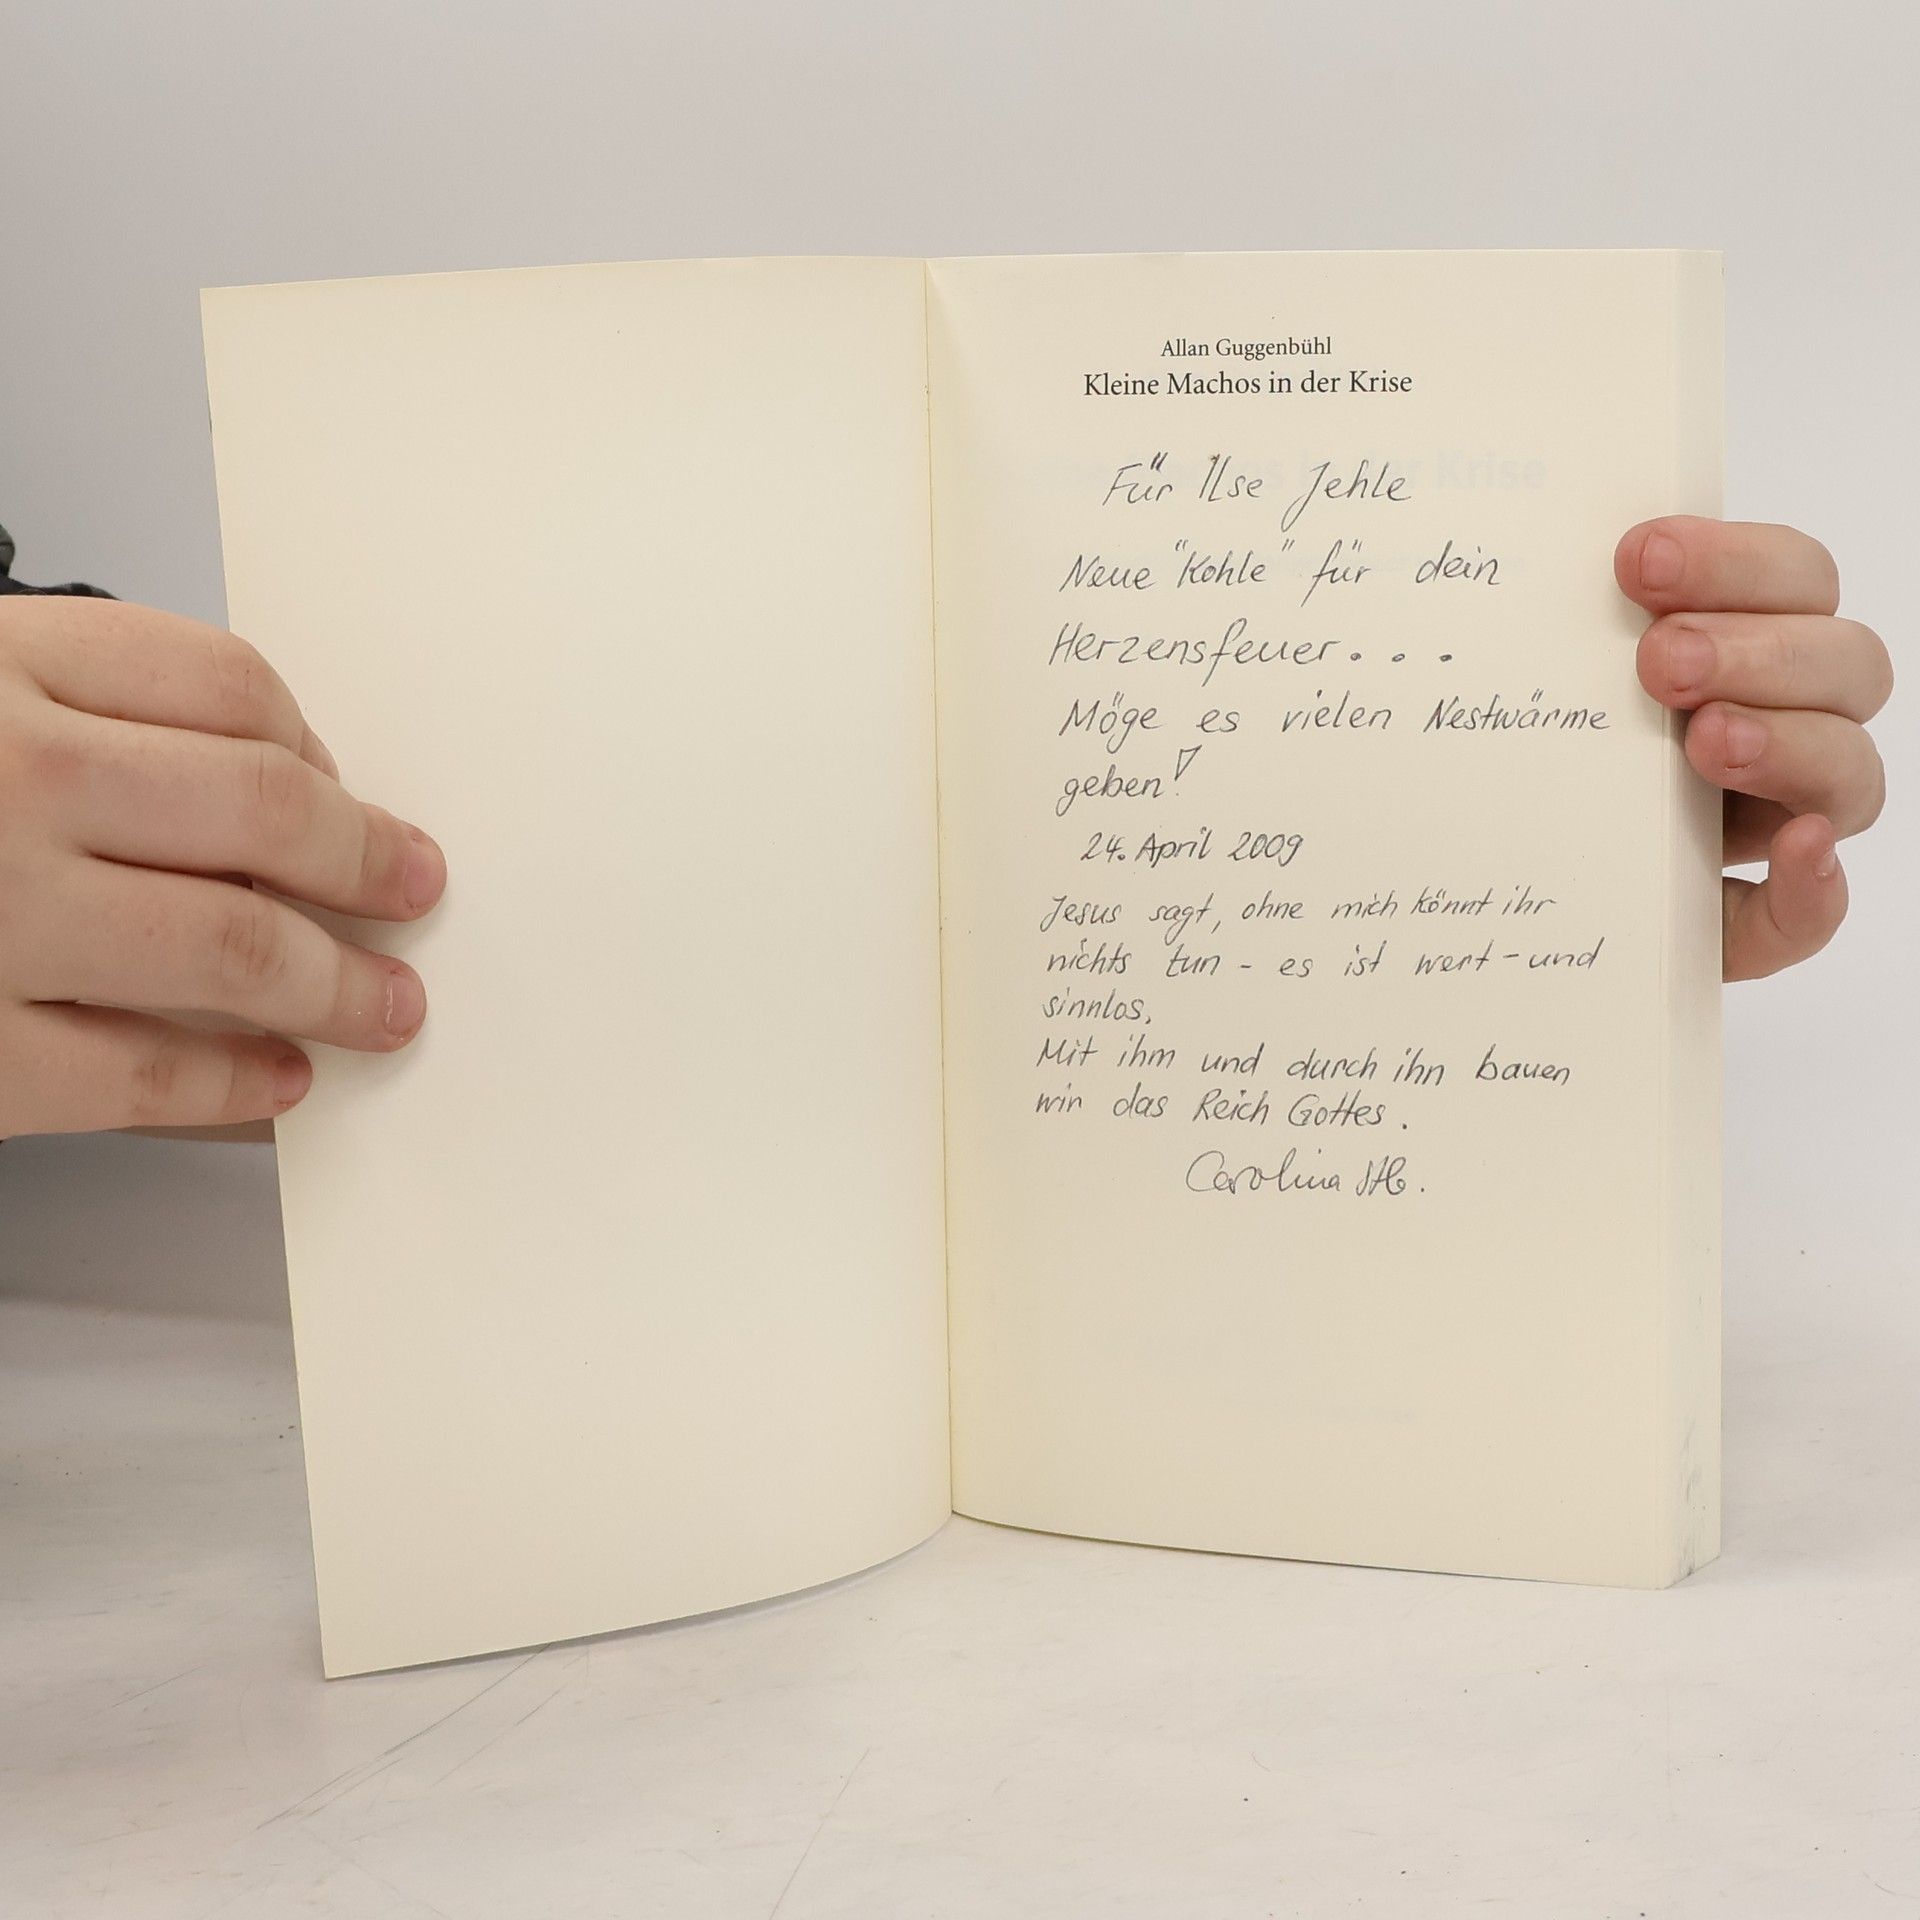 Allan Guggenbühl
Kleine Machos in der Krise
Für Ilse Jehle
Neue "Kohle" für dein
Herzensfeuer...
Möge es vielen Nestwärme
geben!
24. April 2009
Jesus sagt, ohne mich könnt ihr
nichts tun - es ist wert - und
sinnlos.
Mit ihm und durch ihn bauen
wir das Reich Gottes.
Carolina